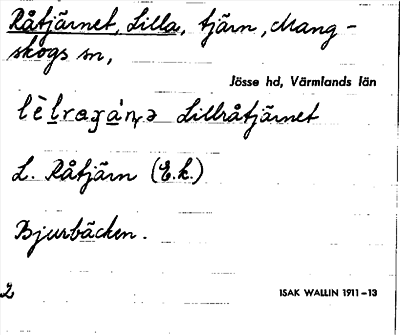 Råtjärnet, Lilla, tjärn, Mang-
skogs sn,
Jösse hd, Värmlands län
Lillråtjärnet
L. Råtjärn (E.k.)
Bjurbäcken.
2
ISAK WALLIN 1911–13